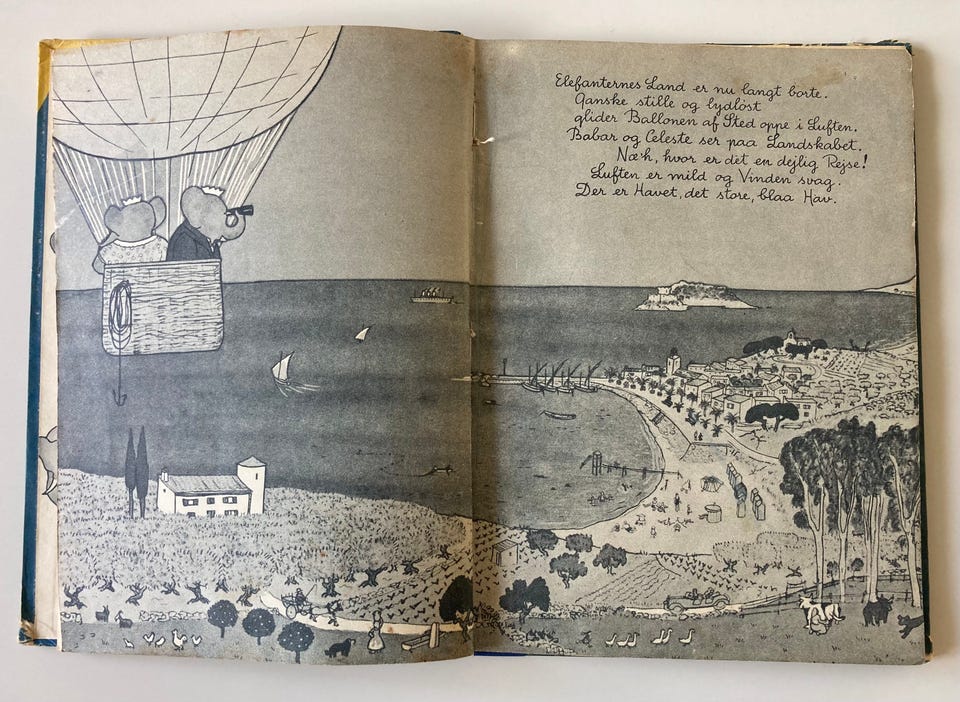 Elefanternes Land er nu langt borte.
Ganske stille og lydløst
glider Ballonen af Sted oppe i Luften.
Babar og Celeste ser paa Landskabet.
Næh, hvor er det en dejlig Rejse!
Luften er mild og Vinden svag.
Der er Havet, det store, blaa Hav.